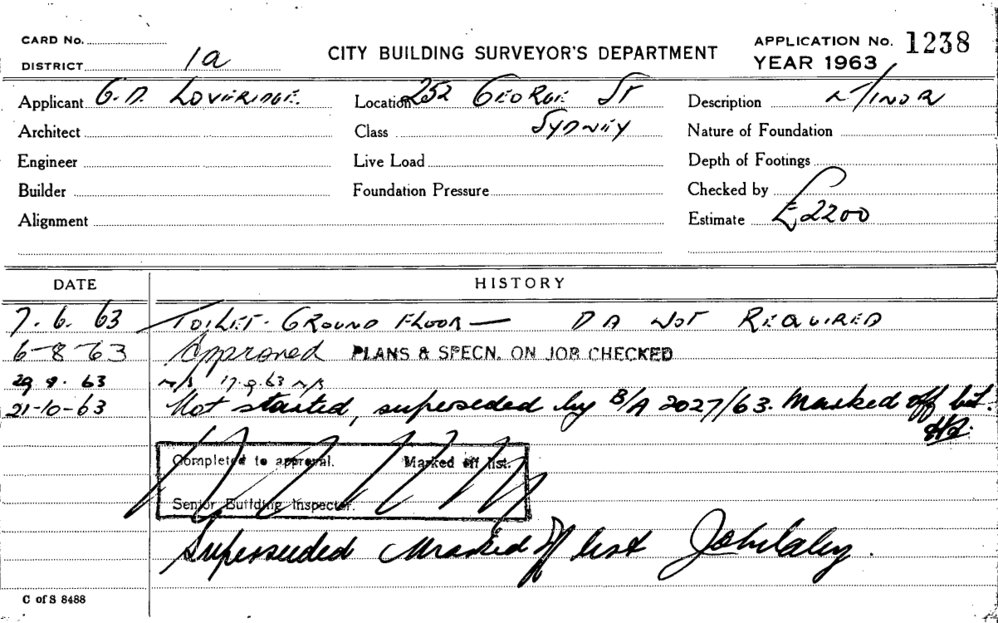 CARD No.
DISTRICT 1a
CITY BUILDING SURVEYOR'S DEPARTMENT
APPLICATION No. 1238
YEAR 1963
Applicant G.D. LOVERIDGE.
Location 252 GEORGE ST
Description MINOR
Architect
Class SYDNEY
Nature of Foundation
Engineer
Live Load
Depth of Footings
Builder
Foundation Pressure
Checked by
Alignment
Estimate £2200
DATE HISTORY
7.6.63 TOILET. GROUND FLOOR — DA NOT REQUIRED
6-8-63 Approved PLANS & SPECN. ON JOB CHECKED
29 8. 63 n/s 17.9.63 n/s
21-10-63 Not started, superseded by B/A 2027/63. Marked off list.
Completed to approval. Marked off list.
Senior Building Inspector.
Superseeded Marked off list
C of S 8488